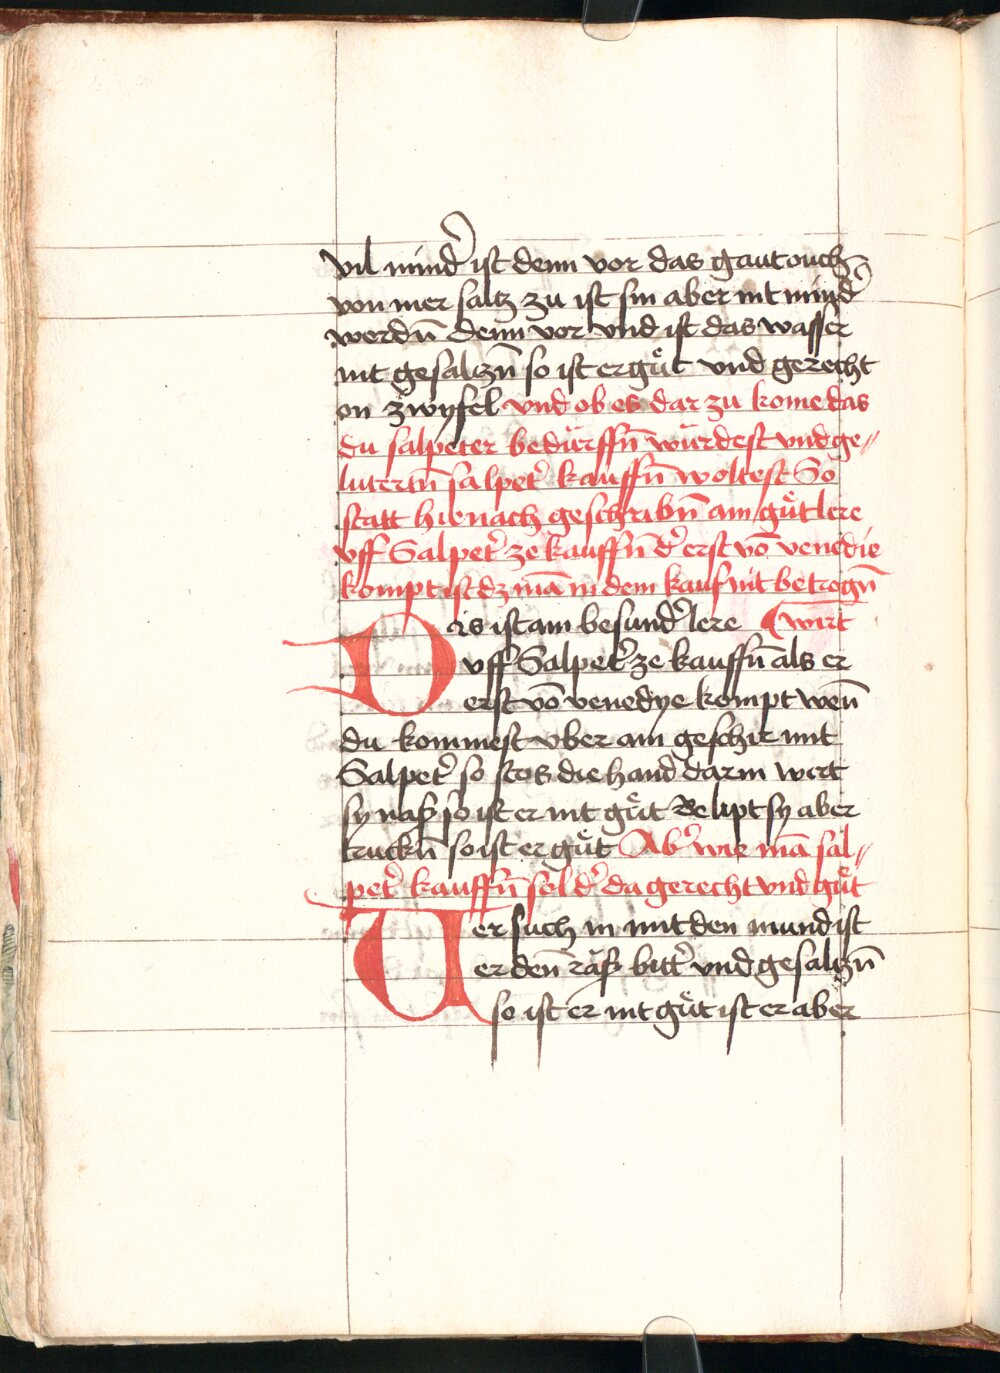 vil mind' ist denn vor das gat ouch
von mer saltz zu ist sin aber nit mind'
werdn̄ denn vor vnd ist das wasser
nit gesaltzn̄ so ist er gůt vnd gerecht
on zwyfel vnd ob es dar zu kome das
du salpeter bedürffn̄ würdest vnd ge⸗
lutertn̄ salpet' kauffn̄ woltest So
statt hie nach geschribn̄ ain gůt lere
vff Salpet' ze kauffn̄ d' erst vō venedie
kompt ist dz mā in dem kauf nit betrogn̄
Dis ist ain besund' lere (wirt
vff Salpet' ze kauffn̄ als er
erst vō venedye kompt wen̄
du kommest vber ain geschir mit
Salpet' so stos die hand darin wirt
sy naß so ist er nit gůt Beliptsy aber
truckn̄ so ist er gůt Ab' wie mā sal⸗
pet' kauffn̄ sol d' da gerecht vnd gůt
Versuch in mit den mund ist
er den̄ räß bitt' vnd gesaltzn̄
so ist er nit gůt ist er aber